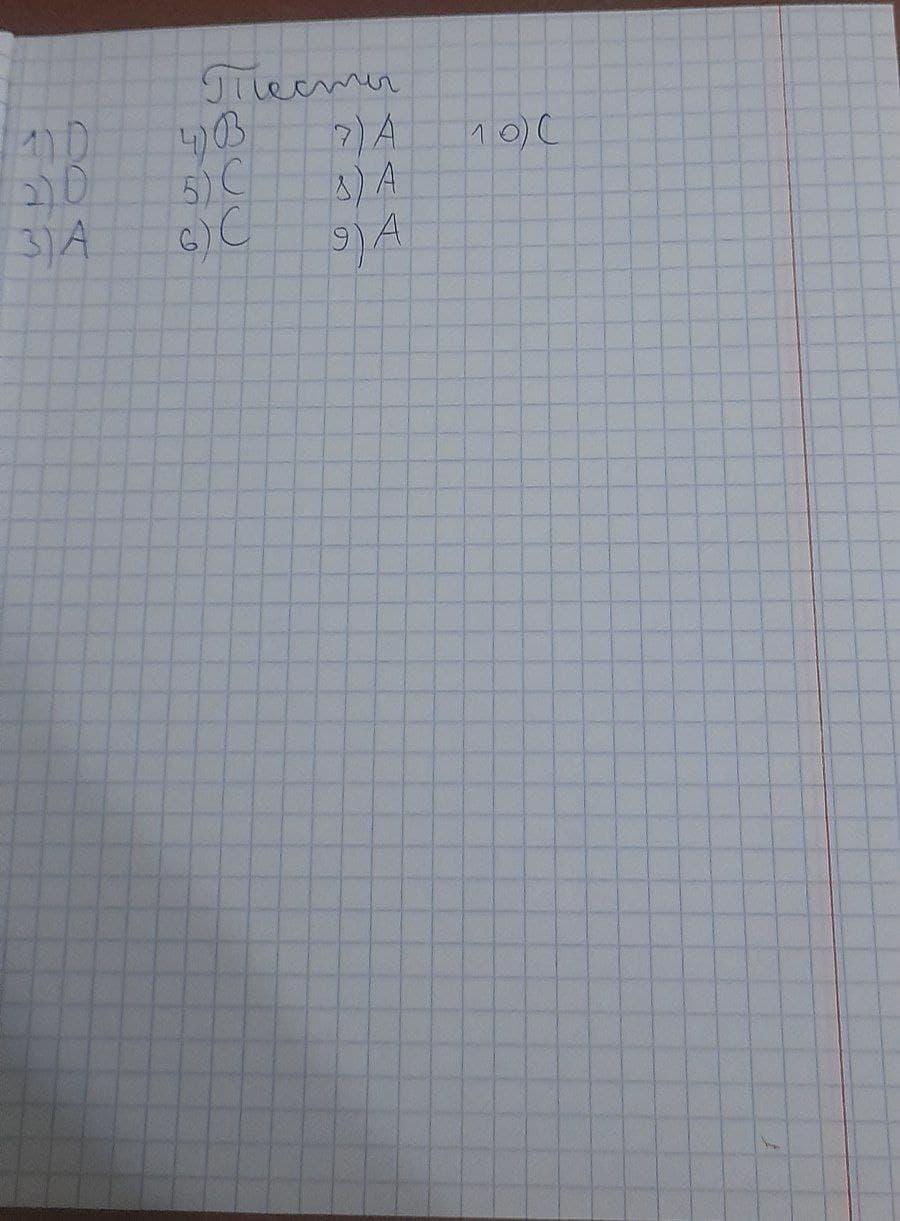 Тесты
1) D 4) B 7) A 10) C
2) D 5) C 8) A
3) A 6) C 9) A